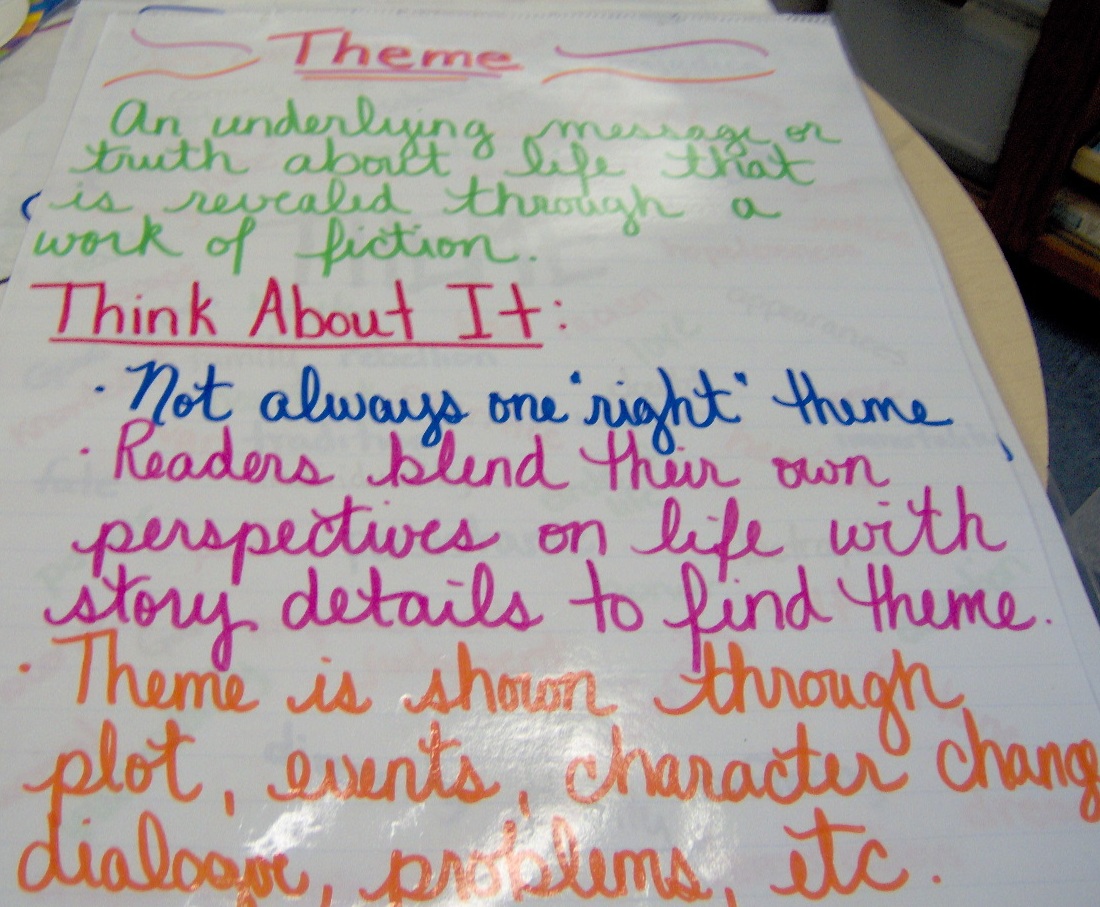 Theme
An underlying message or
truth about life that
is revealed through a
work of fiction.
Think About It:
· Not always one "right" theme
· Readers blend their own
perspectives on life with
story details to find theme.
· Theme is shown through
plot, events, character chang
dialogue, problems, etc.
appearances
rebellion
love
fate